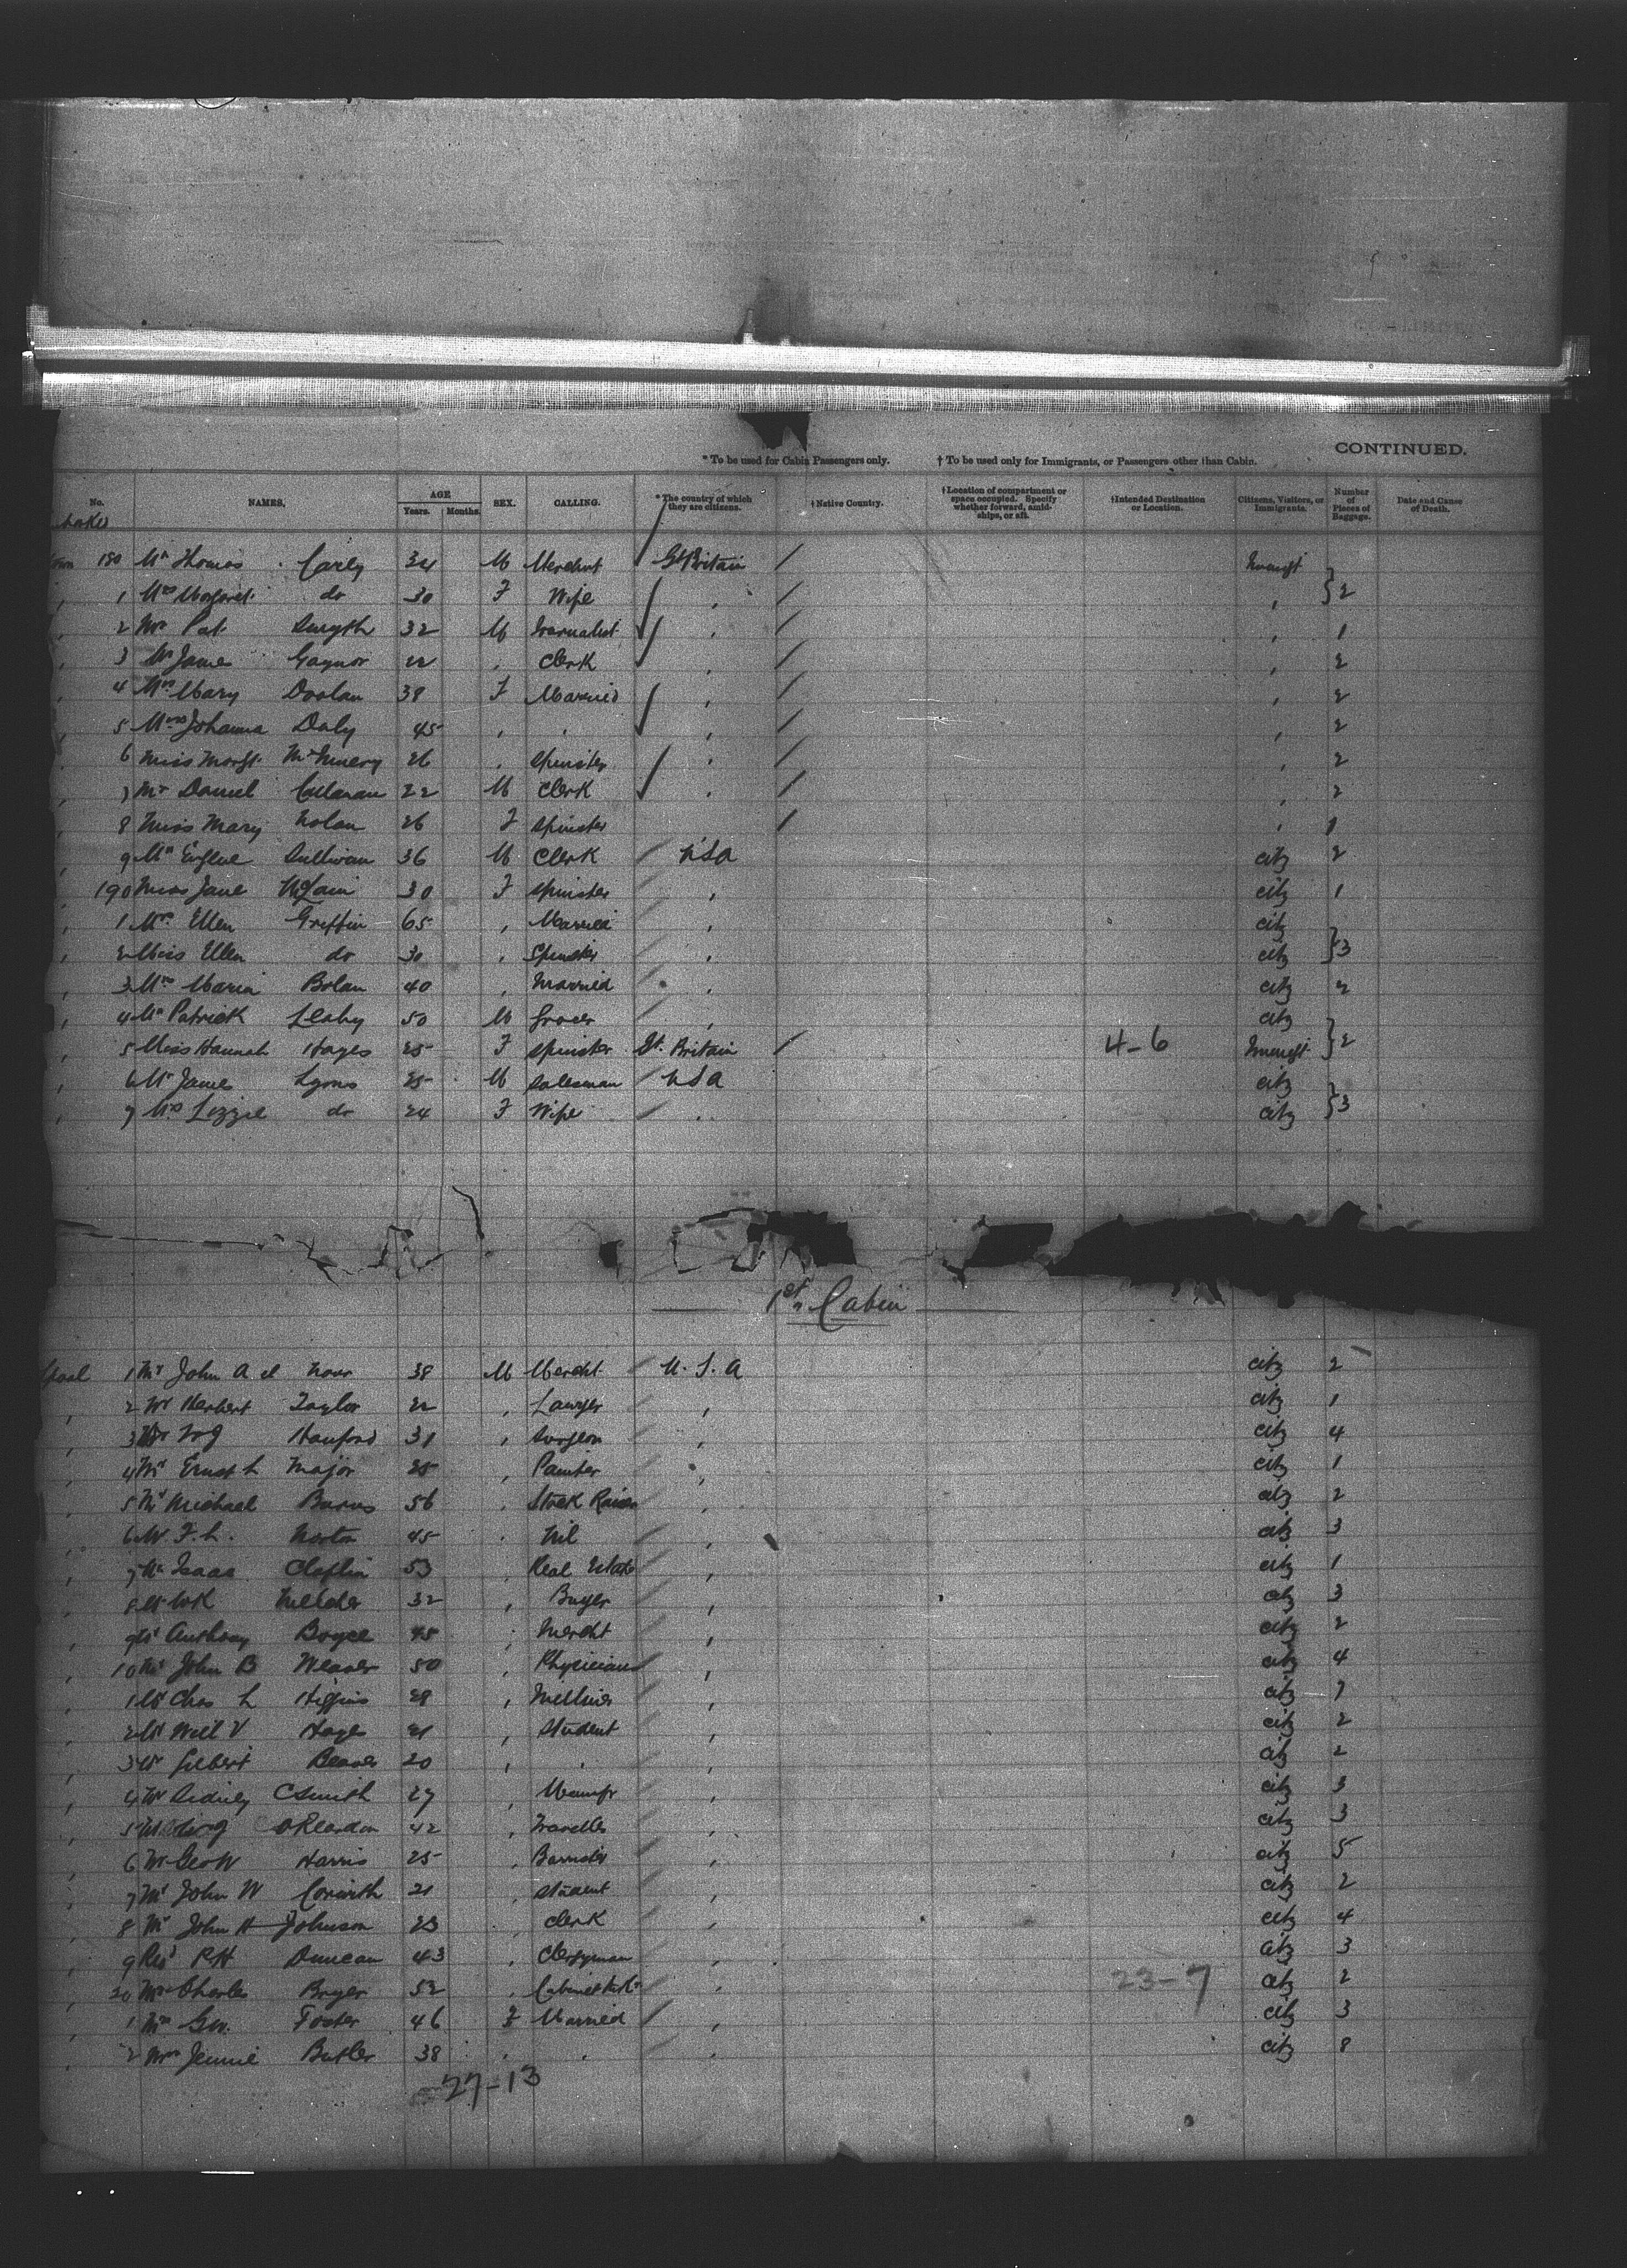 CONTINUED.
* To be used for Cabin Passengers only. † To be used only for Immigrants, or Passengers other than Cabin.
No. NAMES. AGE Years. Months. SEX. CALLING. * The country of which they are citizens. † Native Country. † Location of compartment or space occupied. Specify whether forward, amidships, or aft. † Intended Destination or Location. Citizens, Visitors, or Immigrants. Number of Pieces of Baggage. Date and Cause of Death.
180 Mr Thomas Carly 34 M Merchnt Gt Britain
1 Mrs Margaret do 30 F Wife 2
2 Mr Pat. Smyth 32 M Journalist 1
3 Mr James Gaynor 22 Clerk 2
4 Mrs Mary Doolan 38 F Married 2
5 Mrs Johanna Daly 45 2
6 Miss Margt. 26 Spinster 2
7 Mr Daniel Callanan 22 M Clerk 2
8 Miss Mary Nolan 26 F Spinster 1
9 Mr Eugene Sullivan 36 M Clerk USA citz 2
190 Miss Jane McLain 30 F Spinster citz 1
1 Mrs Ellen Griffin 65 Married citz
2 Miss Ellen do 30 Spinster citz 3
3 Mrs Maria Bolan 40 Married citz 2
4 Mr Patrick Leahy 50 M Grocer citz
5 Miss Hannah Hayes 25 F Spinster Gt. Britain 4-6 2
6 Mr James Lyons 25 M Salesman USA citz
7 Mrs Lizzie do 24 F Wife citz 3
1st Cabin
1 Mr John A 38 M Mercht U.S.A citz 2
2 Mr Herbert Taylor 22 Lawyer citz 1
3 Hanford 31 Surgeon citz 4
4 Mr Ernest L Major 25 Painter citz 1
5 Mr Michael Burns 56 Stock Raiser citz 2
6 Mr F. L. Norton 45 Nil citz 3
7 Mr Isaac Claflin 53 Real Estate citz 1
8 Mr WK 32 Buyer citz 3
9 Mr Anthony Boyce 45 Mercht citz 2
10 Mr John B Weaver 50 Physician citz 4
1 Mr Chas L Higgins 28 citz 7
2 Mr Will V Hayes 21 Student citz 2
3 Mr Gilbert Beaver 20 citz 2
4 Mr Sidney C Smith 27 Manufr citz 3
5 O'Reardon 42 Traveller citz 3
6 Mr Geo W Harris 25 Barrister citz 5
7 Mr John W Corwith 21 Student citz 2
8 Mr John H Johnson 23 Clerk citz 4
9 Revd R H Duncan 43 Clergyman citz 3
20 Mr Charles Boyer 52 23-7 citz 2
1 Mrs Geo. Foster 46 F Married citz 3
2 Mrs Jennie Butler 38 citz 8
27-13